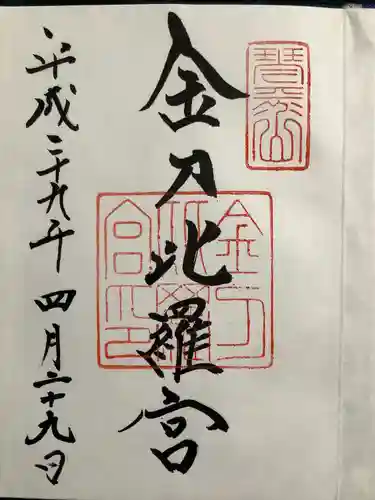 琴平山
金刀比羅宮
金刀比羅宮印
平成二十九年四月二十九日